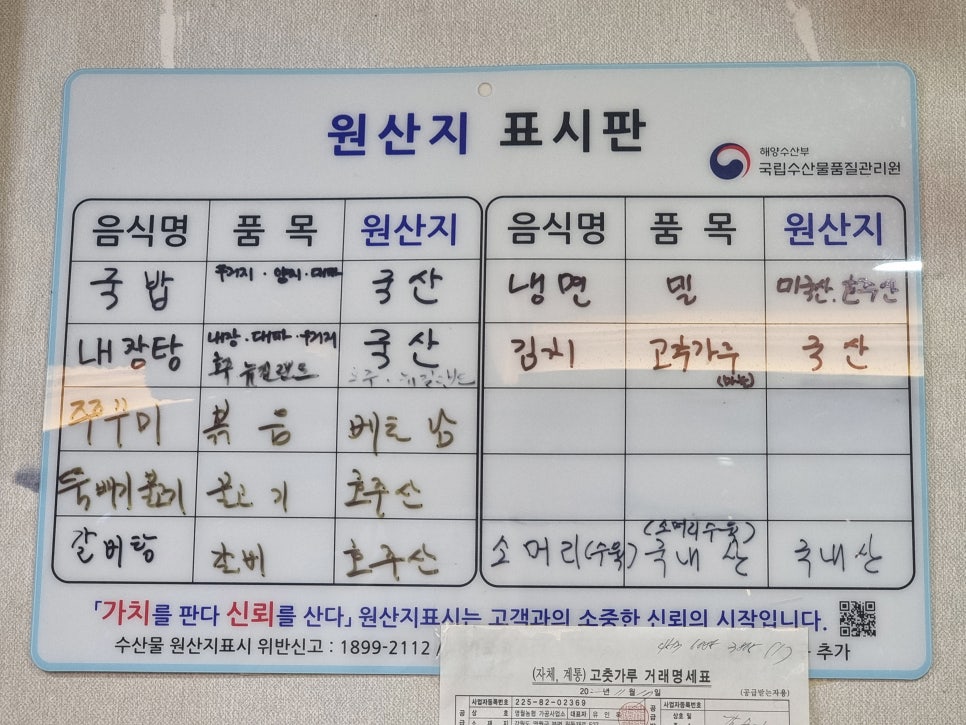 원산지 표시판
해양수산부
국립수산물품질관리원
음식명 품 목 원산지
국 밥 우거지 · 양지 · 대파 국 산
내장탕 내장 · 대파 · 우거지 국 산
호주 뉴질랜드 호주 · 뉴질랜드
쭈꾸미 볶 음 베트남
뚝배기불고기 불고기 호주산
갈비탕 갈비 호주산
음식명 품 목 원산지
냉면 밀 미국산. 호주산
김치 고춧가루 국 산
소머리(수육) (소머리수육) 국내산 국내산
「가치를 판다 신뢰를 산다」 원산지표시는 고객과의 소중한 신뢰의 시작입니다.
수산물 원산지표시 위반신고 : 1899-2112 /
추가
(자체, 계통) 고춧가루 거래명세표
20 년 월 일 (공급받는자용)
사업자등록번호 225-82-02369 사업자등록번호
영월농협 가공사업소 대표자 유 인 상호 및